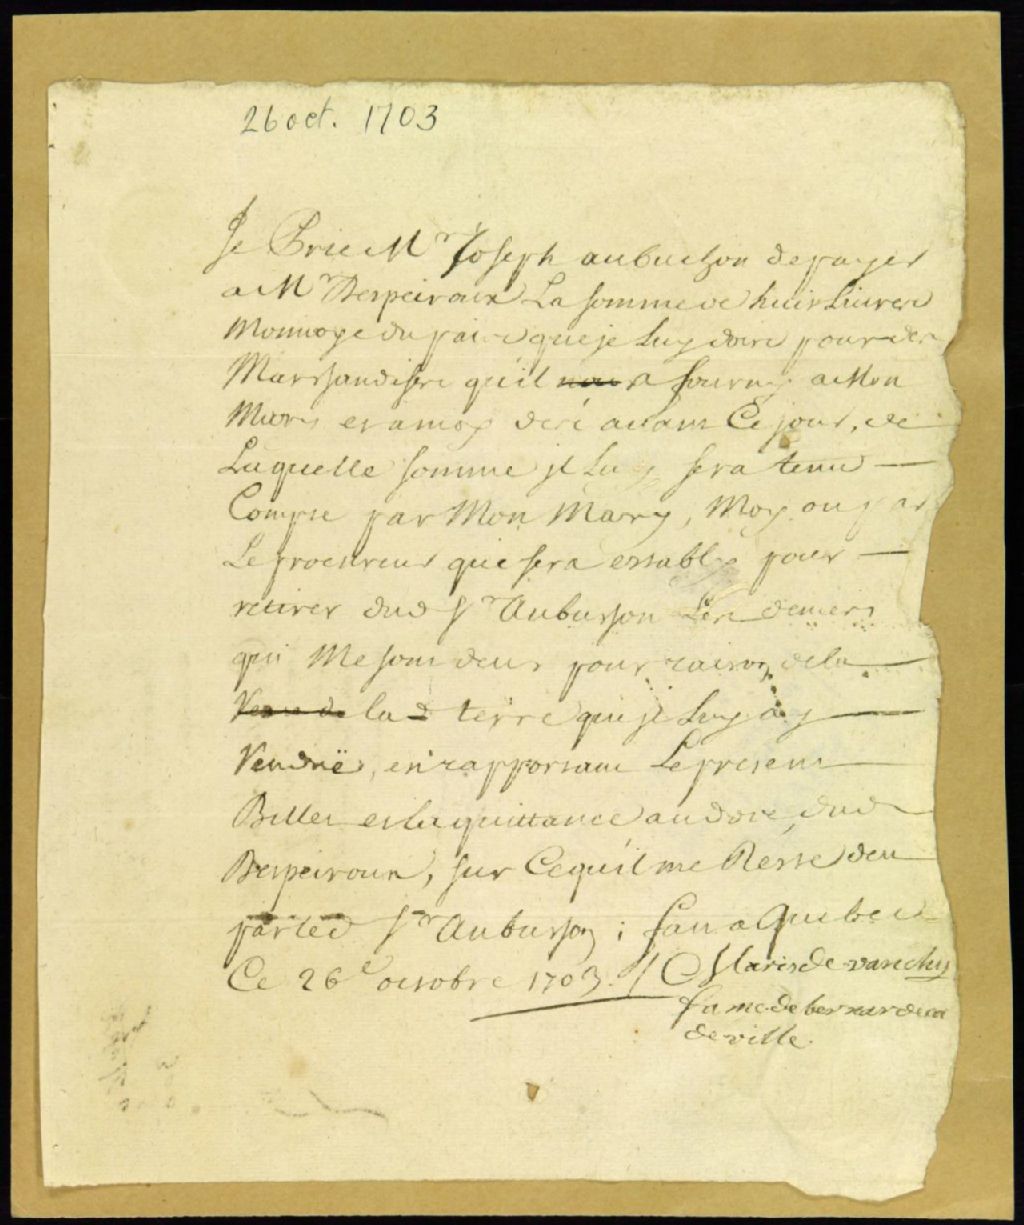 26 oct. 1703
Je Prie Mr Joseph aubuchon de payer
a Mr Despeiroux La somme de huit Livres
Monnoye du païs que je Luy dois pour des
Marchandises qu'il a fourny a Mon
Mary et a moy
Laquelle somme jl Luy sera tenu
Compte par Mon Mary, Moy ou par
Le procureur qui sera estably pour
retirer dud Sr Aubuchon Les deniers
qui Me sont deus pour raison de la
Vente de lad terre que je Luy ay
Vendüe, en rapportant Le present
Billet et la quittance au dos dud
Despeiroux, sur Ce qu'il me Reste deu
par led Sr Aubuchon ; fait a Quebec
Ce 26e octobre 1703.
Marie de
fame de bernar
de ville